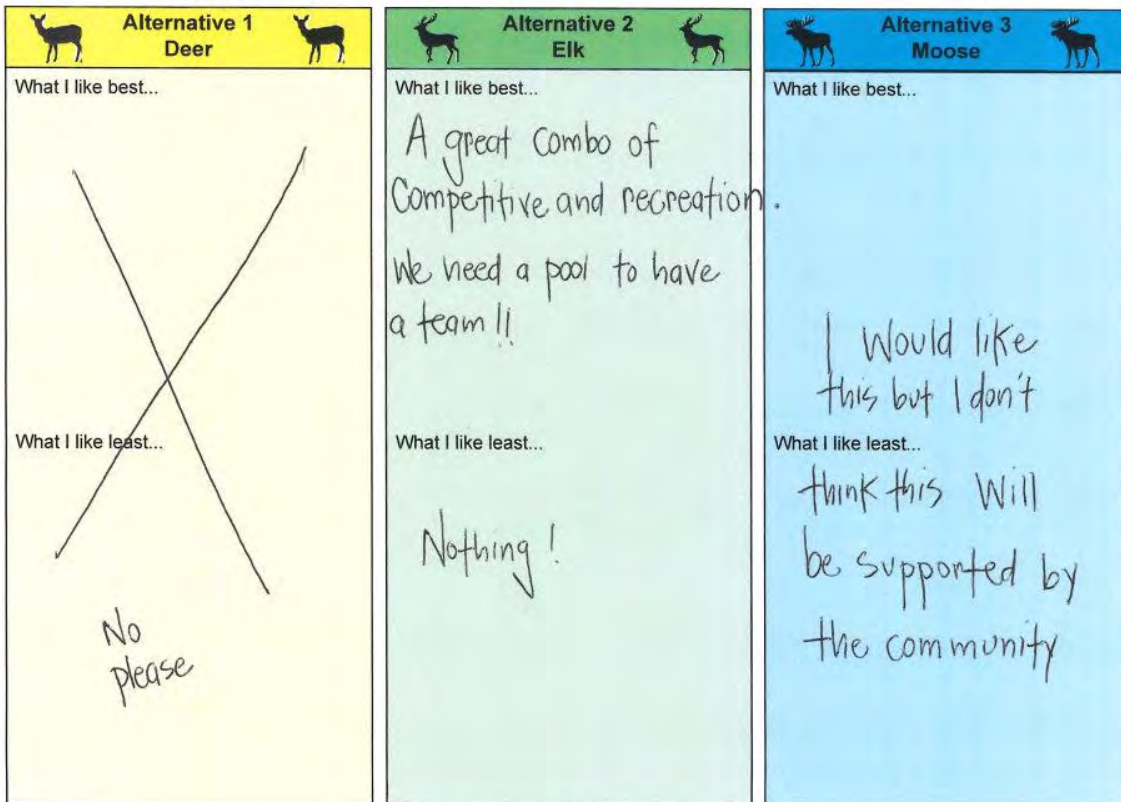 Alternative 1
Deer
What I like best...
What I like least...
No
please
Alternative 2
Elk
What I like best...
A great combo of
Competitive and recreation.
We need a pool to have
a team!!
What I like least...
Nothing!
Alternative 3
Moose
What I like best...
I Would like
this but I don't
What I like least...
think this Will
be supported by
the community